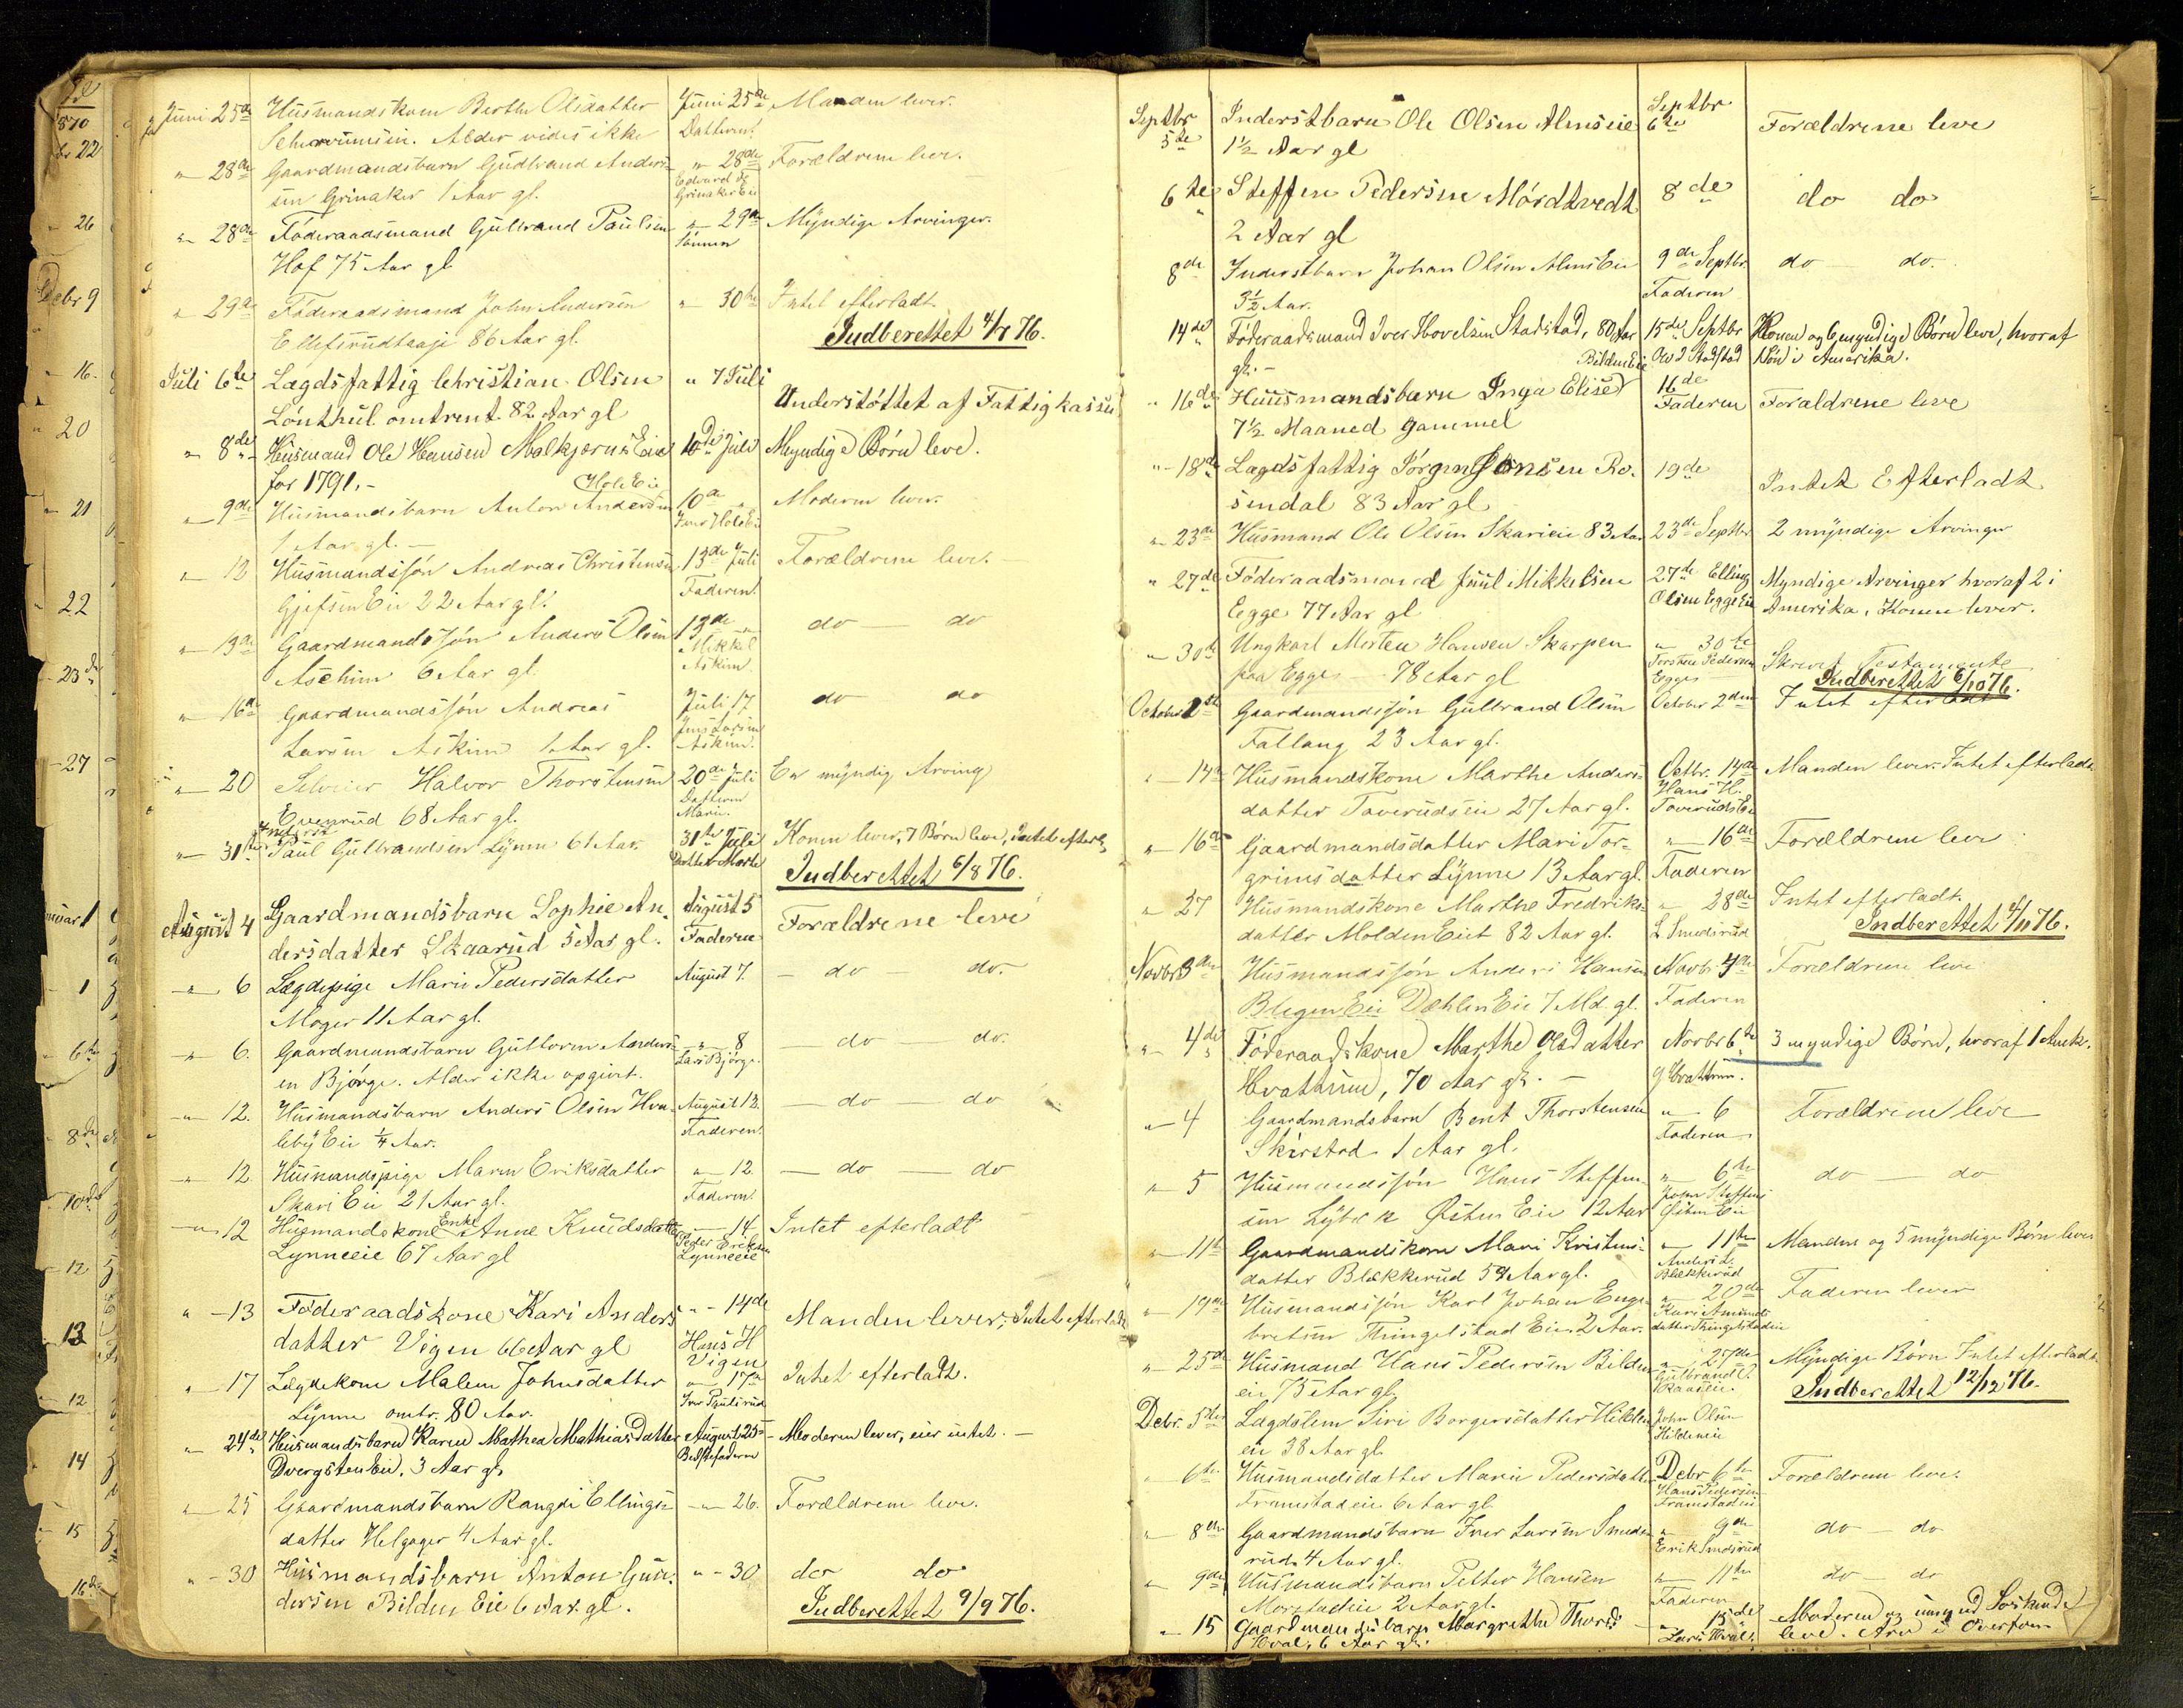 Juni 25de Husmandskone Berthe Olsdatter Juni 25de Manden lever.
Alder vides ikke Datteren
" 28de Gaardmandsbarn Gudbrand Anders- " 28de Forældrene leve.
sen Grinaker 1 Aar gl. Edvard Grinaker Eie
" 28de Föderaadsmand Gulbrand Paulsen " 29de Myndige Arvinger.
Hof 75 Aar gl. Sønnen
" 29de Föderaadsmand John Andersen " 30te Intet efterladt
86 Aar gl. Indberettet 4/7 76.
Juli 6te Lægdsfattig Christian Olsen " 7 Juli
Lönthul omtrent 82 Aar gl Understöttet af Fattigkassen
" 8de Husmand Ole Hansen Molkjerns Eie 10de Juli Myndige Børn leve.
før 1791.- Hole Eie
" 9de Husmandsbarn Anton Andersen 10de " Moderen lever.
1 Aar gl. - Iver Hole Eie
" 12 Husmandssön Andreas Christensen 13de Juli Forældrene leve.
Gjefsen Eie 22 Aar gl. Faderen
" 13de Gaardmandssön Anders Olsen 13de " do — do
Aschim 6 Aar gl. Mikkel Askim.
" 16de Gaardmandssön Andreas Juli 17 do do
Larsen Askim 1 Aar gl. Jens Larsen Askim.
" 20 Selveier Halvor Thorstensen 20de Juli En myndig Arving
Evenrud 68 Aar gl. Datteren Marie.
Inderst
" 31te Paul Gulbrandsen Lynne 61 Aar. 31te Juli Konen lever, 7 Børn leve, Intet efterl.
Datter Marte Indberettet 6/8 76.
August 4 Gaardmandsbarn Sophie An- August 5 Forældrene leve
dersdatter Skaarud 5 Aar gl. Faderen
" 6 Lægdepige Marie Pedersdatter August 7. — do — do.
Moger 11 Aar gl.
" 6. Gaardmandsbarn Guttorm Anders- " 8 — do — do.
en Bjørge. Alder ikke opgivet. Lars Bjørge.
" 12. Husmandsbarn Anders Olsen Hva- August 12. — do — do
leby Eie 1/4 Aar. Faderen.
" 12. Husmandspige Maren Eriksdatter " 12. — do — do
Skari Eie 21 Aar gl. Faderen.
Enke
" 12 Husmandskone Anne Knudsdatter — 14. Intet efterladt
Lynneeie 67 Aar gl Peder Eriksen Lynneeie
" 13 Föderaadskone Kari Anders " - 14de Manden lever, Intet efterladt
datter Vigen 66 Aar gl Hans H Vigen
" 17 Lægdekone Malene Johnsdatter " 17de Intet efterladt.
Lynne omtr. 80 Aar. Iver Paulsrud
" 24de Husmandsbarn Karen Mathea Mathiasdatter August 25 - Moderen lever, eier intet. -
Dvergsten Eie. 3 Aar gl. Bedstefaderen
" 25 Gaardmandsbarn Rangdi Ellings- " 26. Forældrene leve.
datter Helgager 4 Aar gl.
" 30 Husmandsbarn Anton Gun- " - 30 do do
dersen Bilden Eie 6 Aar. gl. Indberettet 9/9 76.
Septbr 5te Inderstbarn Ole Olsen Almseie Septbr 6te Forældrene leve
1½ Aar gl
6te Steffen Pedersen Mórdtvedt 8de do do
2 Aar gl
8de Inderstbarn Johan Olsen Alms Eie 9de Septbr do — do.
3½ Aar. Faderen
14de Föderaadsmand Iver Hovelsen Stadstad, 80 Aar 15de Septbr Konen og 6 myndige Börn leve, hvoraf
gl.- Bilden Eie Ole I Stadstad 1 Sön i Amerika.
" 16de Huusmandsbarn Inga Elise 16de Faderen Forældrene leve
7½ Maaned gammel
" 18de Lægdsfattig Jörgen Jensen Ro- 19de Intet Efterladt
sendal 83 Aar gl
" 23de Husmand Ole Olsen Skarieie 83 Aar 23de Septbr 2 myndige Arvinger
" 27de Föderaadsmand Juul Mikkelsen 27de Elling Myndige Arvinger hvoraf 2 i
Egge 77 Aar gl Olsen Egge Eie Amerika, Konen lever.
" 30te Ungkarl Morten Hansen Skarpen " 30te Skrevet Testamente
paa Egge — 78 Aar gl Torsten Pedersen Egge Indberettet 6/10 76.
October 1ste Gaardmandssön Gulbrand Olsen October 2den Intet efterladt
Fallang 23 Aar gl.
" 14de Husmandskone Marthe Anders- Octbr. 14de Manden lever. Intet efterladt
datter Toverudseie 27 Aar gl. Hans H. Toveruds Eie
" 16de Gaardmandsdatter Mari Tor- " 16de Forældrene leve
grimsdatter Lynne 13 Aar gl. Faderen
" 27 Husmandskone Marthe Fredriks- " 28de Intet efterladt.
datter Molden Eiet 82 Aar gl. L Smedsrud Indberettet 4/11 76.
Novbr 3die Husmandssön Anders Hansen Novbr 4de Forældrene leve
Blegen Eie Dæhlen Eie 7 Md. gl. Faderen
" 4de Föderaadskone Marthe Olsdatter Novbr 6te 3 myndige Börn, hvoraf 1 i Amek.
Hvattum, 70 Aar gl. - G Hvattum.
" 4 Gaardmandsbarn Bent Thorstensen " 6 Forældrene leve
Skirstad 1 Aar gl. Faderen
" 5 Husmandssön Hans Steffen- " 6te do — do
sen Lybeck Østen Eie 12 Aar John Steffens Østen Eie
" 11te Gaardmandskone Mari Kristens- " 11te Manden og 5 myndige Börn lever
datter Blækkerud 59 Aar gl. Anders L. Blækkerud
" 19de Husmandssön Karl Johan Enge- " 20de Faderen lever
bretsen Thingelstad Eie 2 Aar. Kari Amunds datter Thingelstadeie
" 25de Husmand Hans Pedersen Bilden " 27de Myndige Børn Intet efterladt
eie 75 Aar gl. Gulbrand Indberettet 12/12 76.
Debr. 5te Lægdslem Siri Borgersdatter Hilden John Olsen
eie 38 Aar gl. Hildeneie
" 6te Husmandsdatter Marie Pedersdatter Debr 6te Forældrene leve.
Framstadeie 6 Aar gl Hans Pedersen Framstadeie
" 8de Gaardmandsbarn Iver Larsen Smeds- " 9de do — do
rud 4 Aar gl. Erik Smedsrud
" 9de Husmandsbarn Petter Hansen " 11te do — do
Morstadeie 2 Aar gl. Faderen
" 15 Gaardmandsbarn Margrethe Thords - 15de Moderen og umynd. Söskende
Hval, 6 Aar gl. Lars Hval. leve. Arv i Overfor.